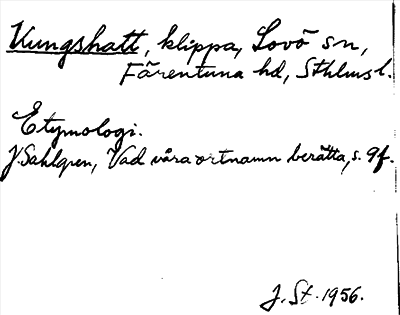 Kungshatt, klippa, Lovö sn,
Färentuna hd, Sthlms l.
Etymologi.
J. Sahlgren, Vad våra ortnamn berätta, s. 9f.
J. St. 1956.